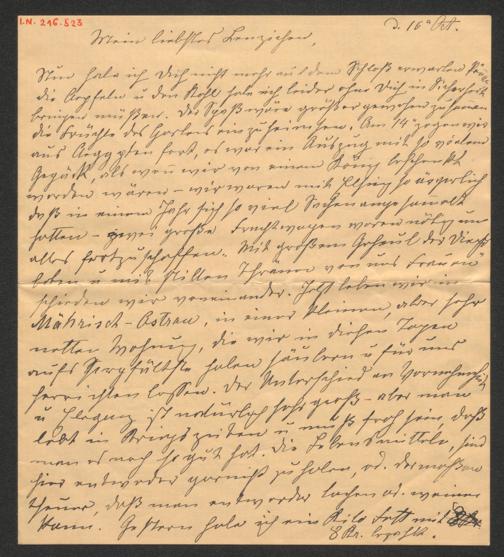 I.N. 216.823
d. 16ª Oct.
Mein liebstes Lenzichen,
Nun habe ich Dich nicht mehr auf dem Schloß erwarten können
die Aepfeln u den Kohl habe ich leider ohne Dich in Sicherheit
bringen müßen. Der Spaß wäre größer gewesen zusammen
die Früchte des Gartens einzuheimsen. Am 14ª zogen wir
aus Aegypten fort, es war ein Auszug mit so vielem
Gepäck, als wenn wir von einem König beschenkt
worden wären – wir waren mit so ärgerlich
daß in einem Jahr sich so viel Sachen angesammelt
hatten – zwei große Frachtwagen waren nötig um
alles fortzuschaffen. Mit großem Geheul der Dienst-
boten u mit stillen Thränen von uns Frauen
schieden wir voneinander. Jetzt leben wir in
Mährisch-Ostrau, in einer kleinen, aber sehr
netten Wohnung, die wir in diesen Tagen
aufs Sorgfältigste haben säubern u für uns
herrichten lassen. Der Unterschied an Vornehmheit
u Eleganz ist natürlich sehr groß – aber man
lebt in Kriegszeiten u muß froh sein, daß
man es noch so gut hat. Die Lebensmitteln, sind
hier entweder garnicht zu holen, od. dermaßen
theuer, daß man entweder lachen od. weinen
kann. Gestern habe ich ein Kilo Fett mit
8 Kr. bezahlt.